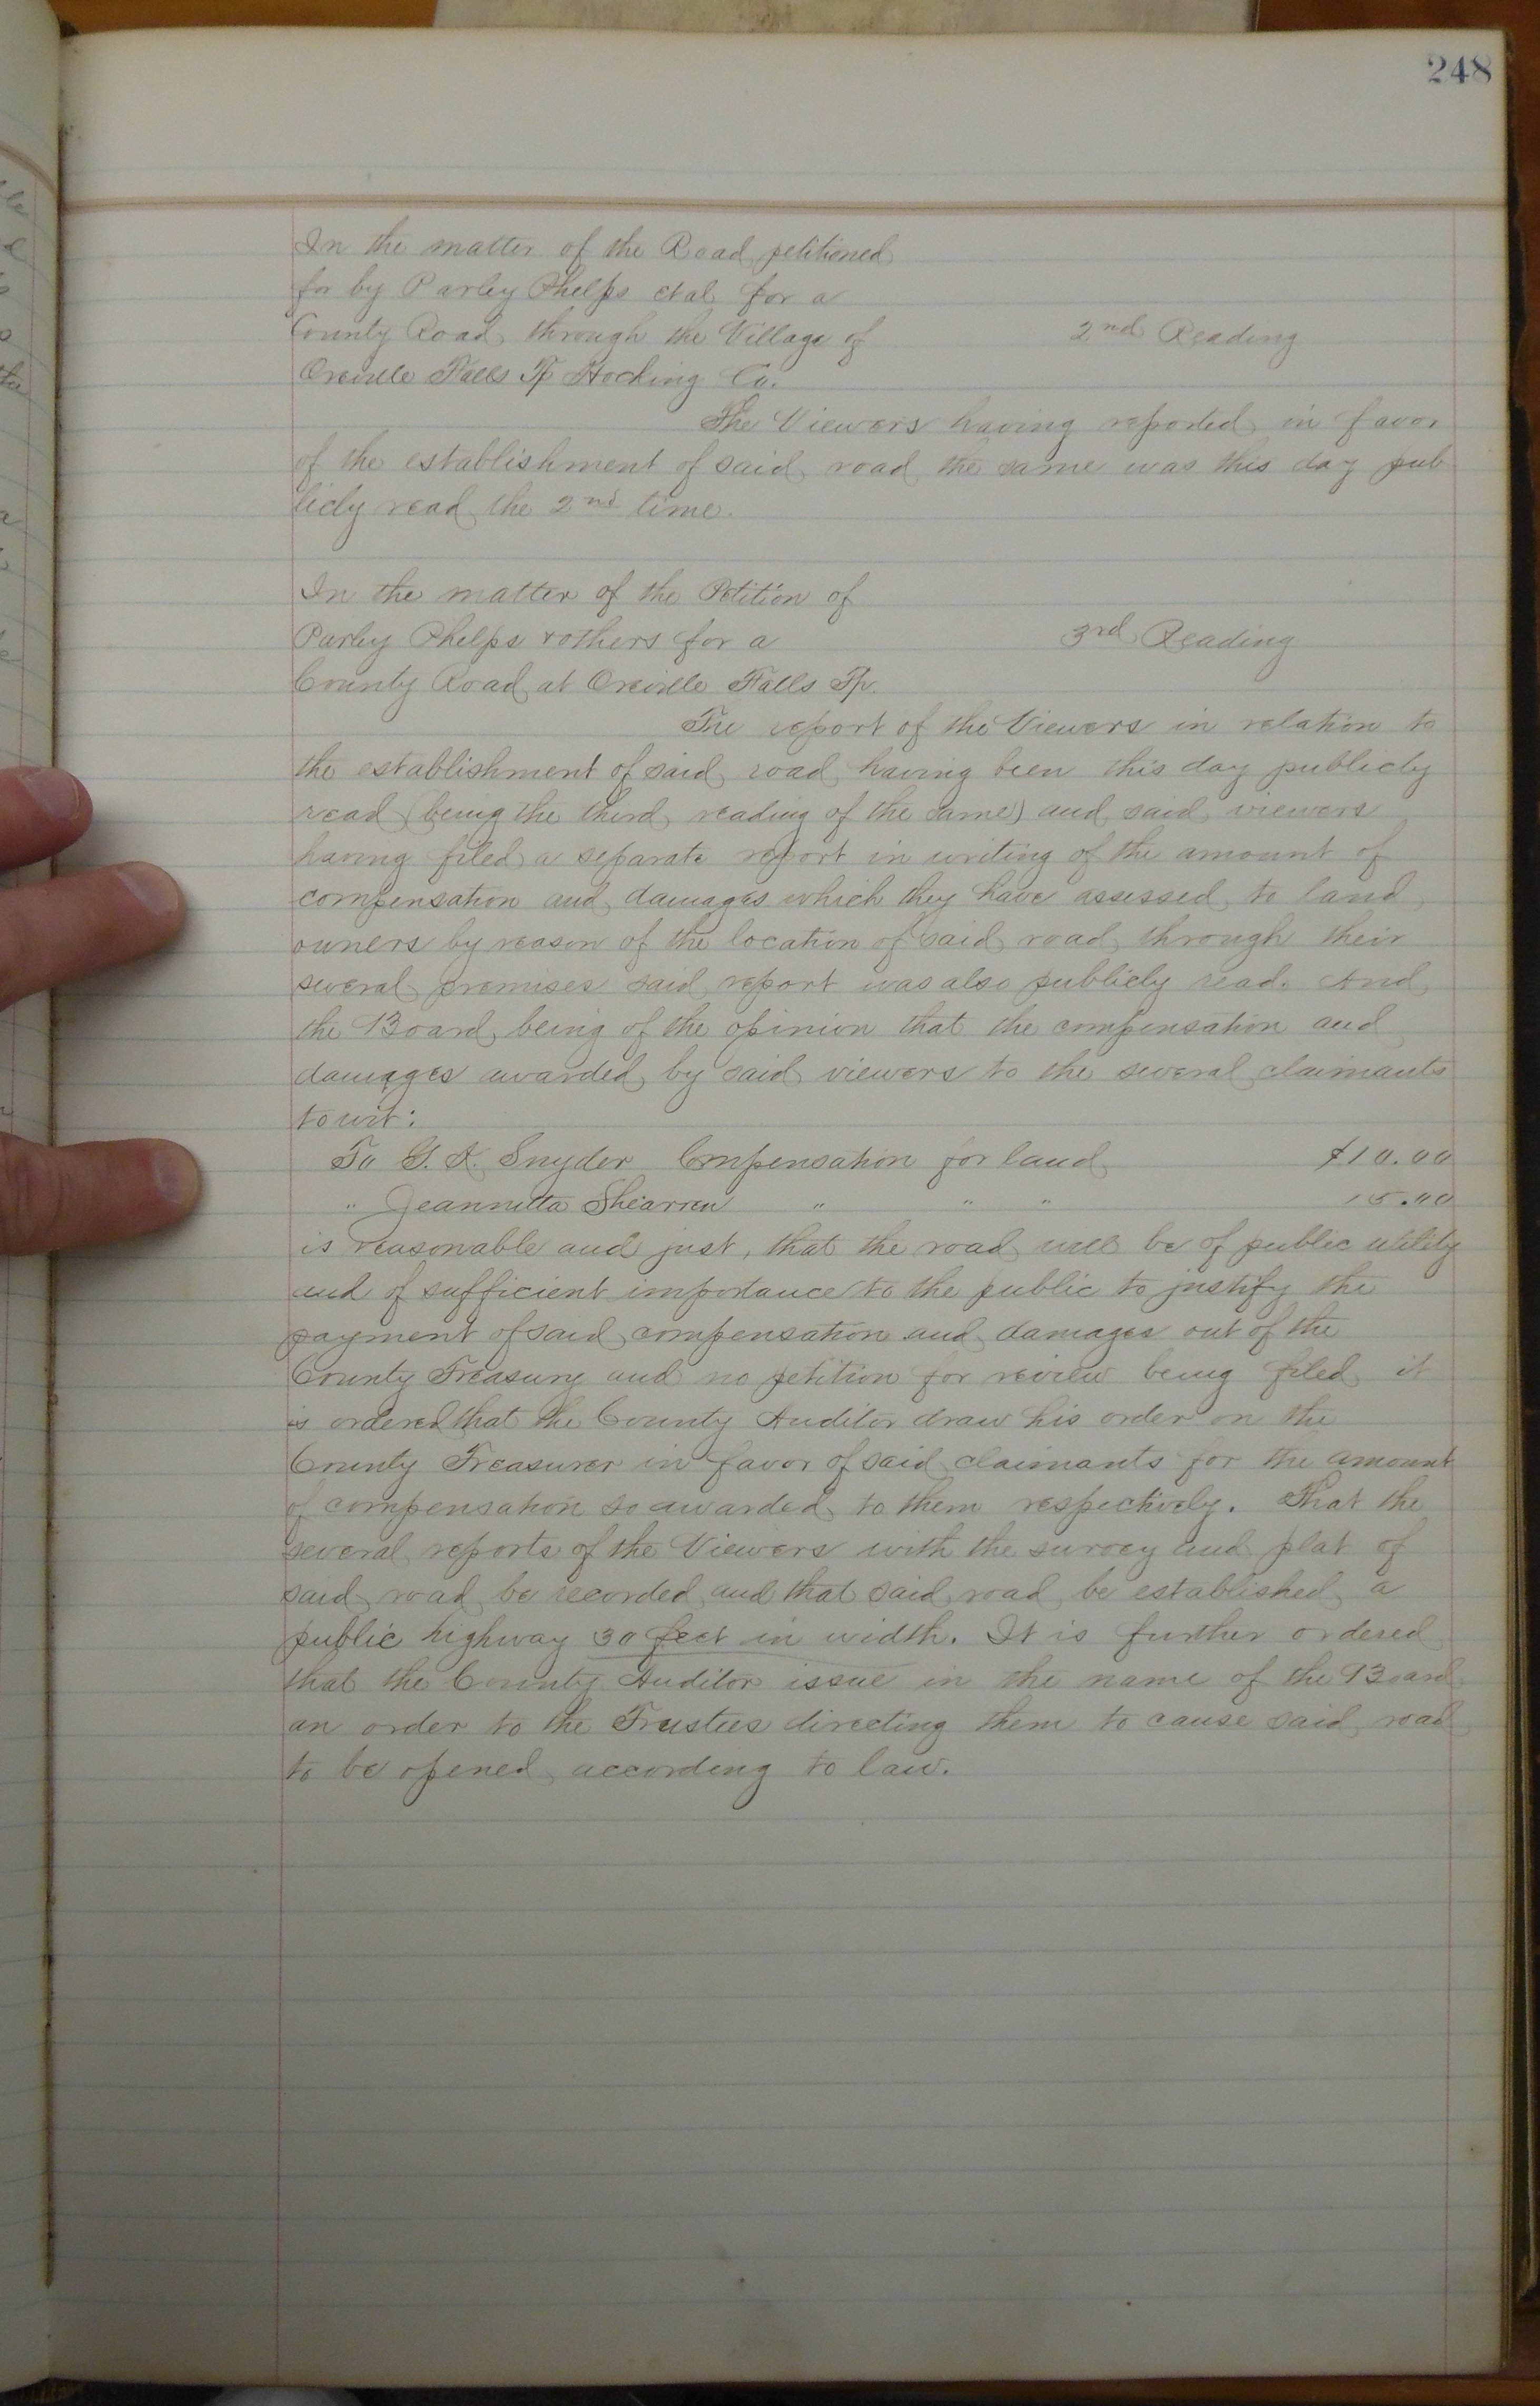 248
In the matter of the Road petitioned
for by Parley Phelps et al for a
County Road through the Village of 2nd Reading
Oreville Falls Tp Hocking Co.
The Viewers having reported in favor
of the establishment of said road the same was this day pub
licly read the 2nd time.
In the matter of the Petition of
Parley Phelps & others for a 3rd Reading
County Road at Oreville Falls Tp.
The report of the Viewers in relation to
the establishment of said road having been this day publicly
read (being the third reading of the same) and said viewers
having filed a separate report in writing of the amount of
compensation and damages which they have assessed to land
owners by reason of the location of said road through their
several premises said report was also publicly read. And
the Board being of the opinion that the compensation and
damages awarded by said viewers to the several claimants
to wit:
To G. Snyder Compensation for land $10.00
" Jeannetta Shearren " " " 15.00
is reasonable and just, that the road will be of public utility
and of sufficient importance to the public to justify the
payment of said compensation and damages out of the
County Treasury and no petition for review being filed it
is ordered that the County Auditor draw his order on the
County Treasurer in favor of said claimants for the amount
of compensation so awarded to them respectively. That the
several reports of the Viewers with the survey and plat of
said road be recorded and that said road be established a
public highway 30 feet in width. It is further ordered
that the County Auditor issue in the name of the Board
an order to the Trustees directing them to cause said road
to be opened according to law.